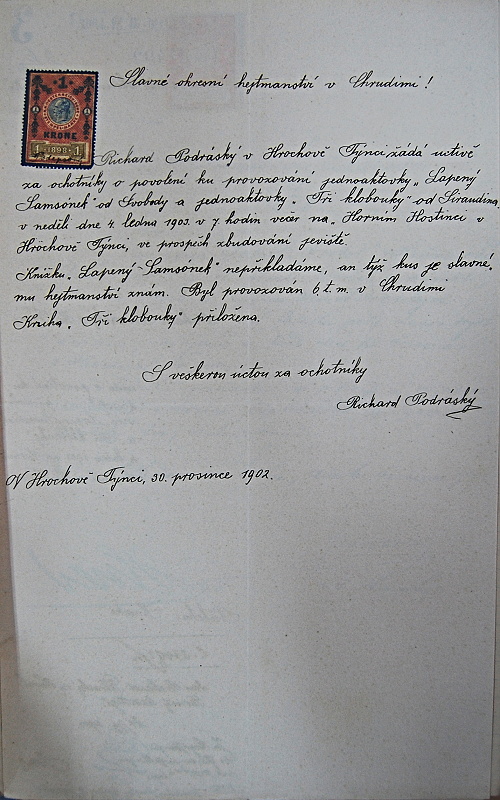 Slavné okresní hejtmanství v Chrudimi!
1
KRONE
1 1898 1
Richard Podráský v Hrochově Týnci žádá uctivě
za ochotníky o povolení ku provozování jednoaktovky „Lapený
Samsónek" od Svobody a jednoaktovky „Tři klobouky" od Siraudina,
v neděli dne 4. ledna 1903 v 7 hodin večer na „Horním Hostinci v
Hrochově Týnci, ve prospěch zbudování jeviště.
Knížku „Lapený Samsónek" nepřikládáme, an týž kus je slavné,
mu hejtmanství znám. Byl provozován 6. t. m. v Chrudimi
Kniha „Tři klobouky" přiložena.
S veškerou úctou za ochotníky
Richard Podráský
V Hrochově Týnci, 30. prosince 1902.